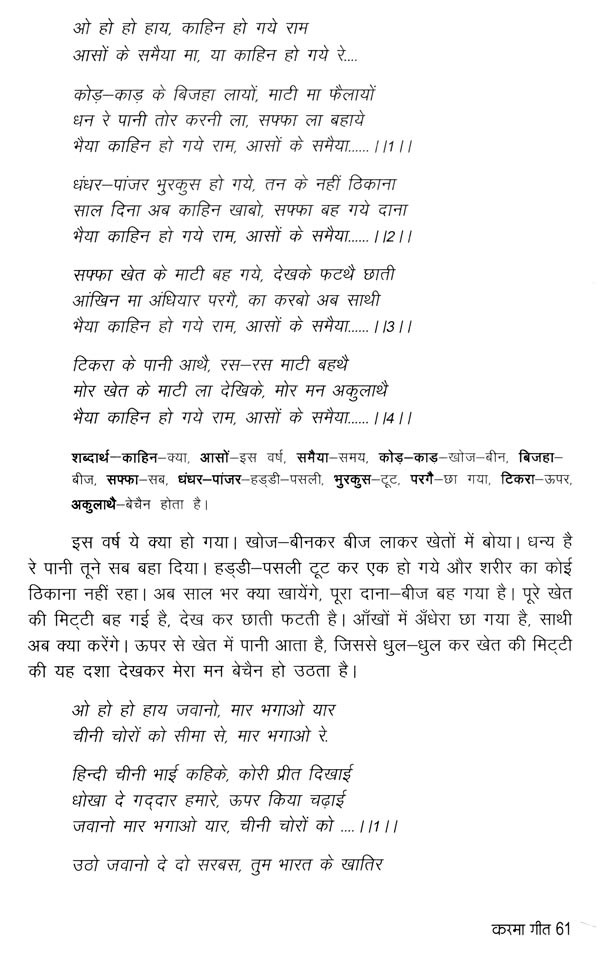 ओ हो हो हाय, काहिन हो गये राम
आसों के समैया मा, या काहिन हो गये रे....
कोड़–काड़ के बिजहा लायों, माटी मा फैलायों
धन रे पानी तोर करनी ला, सफ्फा ला बहाये
भैया काहिन हो गये राम, आसों के समैया...... ।।1।।
धंधर–पांजर भुरकुस हो गये, तन के नहीं ठिकाना
साल दिना अब काहिन खाबो, सफ्फा बह गये दाना
भैया काहिन हो गये राम, आसों के समैया...... ।।2।।
सफ्फा खेत के माटी बह गये, देखके फटथै छाती
आंखिन मा अंधियार परगै, का करबो अब साथी
भैया काहिन हो गये राम, आसों के समैया...... ।।3।।
टिकरा के पानी आथै, रस–रस माटी बहथै
मोर खेत के माटी ला देखिके, मोर मन अकुलाथै
भैया काहिन हो गये राम, आसों के समैया...... ।।4।।
शब्दार्थ–काहिन–क्या, आसों–इस वर्ष, समैया–समय, कोड़–काड़–खोज–बीन, बिजहा–
बीज, सफ्फा–सब, धंधर–पांजर–हड्डी–पसली, भुरकुस–टूट, परगै–छा गया, टिकरा–ऊपर,
अकुलाथै–बेचैन होता है।
इस वर्ष ये क्या हो गया। खोज–बीनकर बीज लाकर खेतों में बोया। धन्य है
रे पानी तूने सब बहा दिया। हड्डी–पसली टूट कर एक हो गये और शरीर का कोई
ठिकाना नहीं रहा। अब साल भर क्या खायेंगे, पूरा दाना–बीज बह गया है। पूरे खेत
की मिट्टी बह गई है, देख कर छाती फटती है। आँखों में अँधेरा छा गया है, साथी
अब क्या करेंगे। ऊपर से खेत में पानी आता है, जिससे धुल–धुल कर खेत की मिट्टी
की यह दशा देखकर मेरा मन बेचैन हो उठता है।
ओ हो हो हाय जवानो, मार भगाओ यार
चीनी चोरों को सीमा से, मार भगाओ रे.
हिन्दी चीनी भाई कहिके, कोरी प्रीत दिखाई
धोखा दे गद्दार हमारे, ऊपर किया चढ़ाई
जवानो मार भगाओ यार, चीनी चोरों को .... ।।1।।
उठो जवानो दे दो सरबस, तुम भारत के खातिर
करमा गीत 61